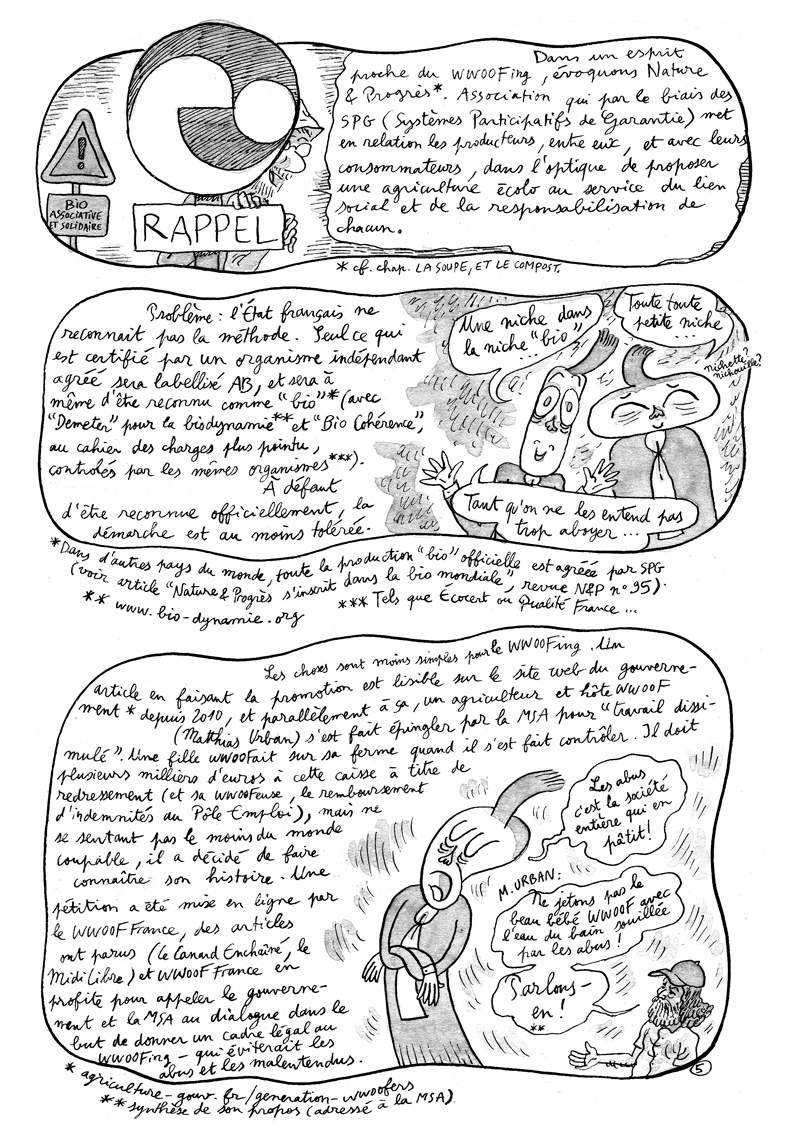 BIO
ASSOCIATIVE
ET SOLIDAIRE
RAPPEL
Dans un esprit
proche du WWOOFing, évoquons Nature
& Progrès*. Association qui par le biais des
SPG (Systèmes Participatifs de Garantie) met
en relation les producteurs, entre eux, et avec leurs
consommateurs, dans l'optique de proposer
une agriculture écolo au service du lien
social et de la responsabilisation de
chacun.
* cf. chap. LA SOUPE, ET LE COMPOST.
Problème : l'État français ne
reconnait pas la méthode. Seul ce qui
est certifié par un organisme indépendant
agréé sera labellisé AB, et sera à
même d'être reconnu comme "bio"* (avec
"Demeter" pour la biodynamie** et "Bio Cohérence",
au cahier des charges plus pointu,
contrôlés par les mêmes organismes***).
À défaut
d'être reconnue officiellement, la
démarche est au moins tolérée.
Une niche dans
la niche "bio"
...
Toute toute
petite niche
...
nichette?
nichouille?
Tant qu'on ne les entend pas
trop aboyer ...
*Dans d'autres pays du monde, toute la production "bio" officielle est agréée par SPG
(voir article "Nature & Progrès s'inscrit dans la bio mondiale", revue N&P n°95).
** www.bio-dynamie.org
*** Tels que Écocert ou Qualité France ...
Les choses sont moins simples pour le WWOOFing. Un
article en faisant la promotion est lisible sur le site web du gouverne-
ment* depuis 2010, et parallèlement à ça, un agriculteur et hôte WWOOF
(Matthias Urban) s'est fait épingler par la MSA pour "travail dissi-
mulé". Une fille WWOOFait sur sa ferme quand il s'est fait contrôler. Il doit
plusieurs milliers d'euros à cette caisse à titre de
redressement (et sa WWOOFeuse, le remboursement
d'indemnités au Pôle Emploi), mais ne
se sentant pas le moins du monde
coupable, il a décidé de faire
connaître son histoire. Une
pétition a été mise en ligne par
le WWOOF France, des articles
ont parus (le Canard Enchaîné, le
Midi Libre) et WWOOF France en
profite pour appeler le gouverne-
ment et la MSA au dialogue dans le
but de donner un cadre légal au
WWOOFing - qui éviterait les
abus et les malentendus.
Les abus
c'est la société
entière qui en
pâtit !
M. URBAN :
Ne jetons pas le
beau bébé WWOOF avec
l'eau du bain souillée
par les abus !
Parlons-
en !
**
5
* agriculture-gouv.fr/generation-wwoofers
** synthèse de son propos (adressé à la MSA)